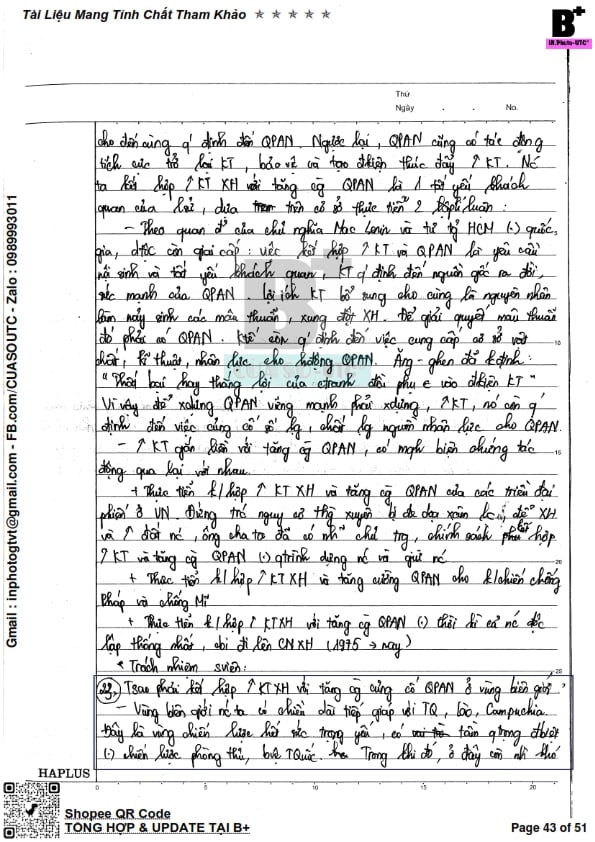 Tài Liệu Mang Tính Chất Tham Khảo ★ ★ ★ ★ ★
B+
IN.Photo-UTC*
Thứ
Ngày . . No.
cho đến cùng q' định đến QPAN. Ngược lại, QPAN cũng có tác động
tích cực trở lại KT, bảo vệ và tạo đkiện thúc đẩy ↑ KT. Nc
ta kết hợp ↑ KT XH với tăng cg̀ QPAN là 1 tất yếu khách
quan của lsử, dựa trên cơ sở thực tiễn
- Theo quan đ' của chủ nghĩa Mac Lenin và tư tg̉ HCM (.) quốc
gia, dtộc còn giai cấp : việc kết hợp ↑ KT và QPAN là yêu cầu
nội sinh và tất yếu khách quan. KT q' định đến nguồn gốc ra đời,
sức mạnh của QPAN. Lợi ích KT bổ sung cho cùng là nguyên nhân
làm nảy sinh các mâu thuẫn, xung đột XH. Để giải quyết mâu thuẫn
đó phải có QPAN. Ktế còn q' định đến việc cung cấp cơ sở vật 10
chất, kĩ thuật, nhân lực cho hđộng QPAN. Ăng-ghen đã kđịnh:
"Thất bại hay thắng lợi của ctranh đều phụ t vào đkiện KT"
Vì vậy để xdựng QPAN vững mạnh phải xdựng, ↑ KT, nó còn q'
định đến việc cung cấp số lg, chất lg người nhân lực cho QPAN.
- ↑ KT gắn liền với tăng cg̀ QPAN, có mqh biện chứng tác 15
động qua lại với nhau.
+ Thực tiễn k/hợp ↑ KT XH và tăng cg̀ QPAN của các triều đại
phkiến ở VN. Đứng trc nguy cơ thg xuyên bị đe dọa xâm lc, để XH
và ↑ đất nc, ông cha ta đã có nh~ chủ trg, chính sách kết hợp
↑ KT và tăng cg̀ QPAN (.) qtrình dựng nc và giữ nc 20
+ Thực tiễn k/hợp ↑ KT XH và tăng cường QPAN cho k/chiến chống
Pháp và chống Mĩ
+ Thực tiễn k/hợp ↑ KTXH với tăng cg̀ QPAN (.) thời kì cả nc độc
lập thống nhất, đi lên CNXH (1975 → nay)
* Trách nhiệm sviên: 25
33. Tsao phải kết hợp ↑ KTXH với tăng cg̀ củng cố QPAN ở vùng biên giới?
- Vùng biên giới nc ta có chiều dài tiếp giáp với TQ, Lào, Campuchia
Đây là vùng chiến lược hết sức trọng yếu, có tầm qtrọng đbiệt
(.) chiến lược phòng thủ, bvệ TQuốc. Trong khi đó, ở đây còn nh~ khó
HAPLUS 0 5 10 15 20
Gmail : inphotogtvt@gmail.com - FB.com/CUASOUTC - Zalo : 0989993011
B+
CUASOUTC
Shopee QR Code
TỔNG HỢP & UPDATE TẠI B+
Page 43 of 51